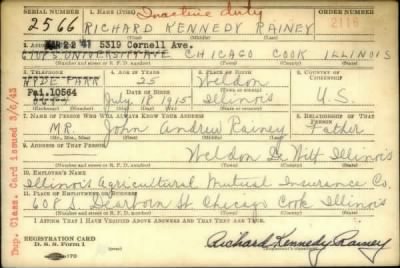 SERIAL NUMBER 1. NAME (Print) Inactive duty ORDER NUMBER
2566 RICHARD KENNEDY RAINEY
(First) (Middle) (Last)
MAR 22 '41 5319 Cornell Ave.
UNIVERSITY AVE CHICAGO COOK ILLINOIS
(Number and street or R. F. D. number) (Town) (County) (State)
3. TELEPHONE 4. AGE IN YEARS 5. PLACE OF BIRTH 6. COUNTRY OF CITIZENSHIP
HYDE PARK 25 Weldon
Fai.10564 DATE OF BIRTH (Town or county)
July 18 1915 Illinois U.S.
(Mo.) (Day) (Yr.) (State or country)
7. NAME OF PERSON WHO WILL ALWAYS KNOW YOUR ADDRESS 8. RELATIONSHIP OF THAT PERSON
MR John Andrew Rainey Father
(Mr., Mrs., Miss) (First) (Middle) (Last)
9. ADDRESS OF THAT PERSON
Weldon De Witt Illinois
(Number and street or R. F. D. number) (Town) (County) (State)
10. EMPLOYER'S NAME
Illinois Agricultural Mutual Insurance Co.
11. PLACE OF EMPLOYMENT OR BUSINESS
608 S. Dearborn St Chicago Cook Illinois
(Number and street or R. F. D. number) (Town) (County) (State)
I AFFIRM THAT I HAVE VERIFIED ABOVE ANSWERS AND THAT THEY ARE TRUE.
REGISTRATION CARD
D. S. S. Form 1
Richard Kennedy Rainey
(Registrant's signature)
Dup. Class. Card issued 3/6/43